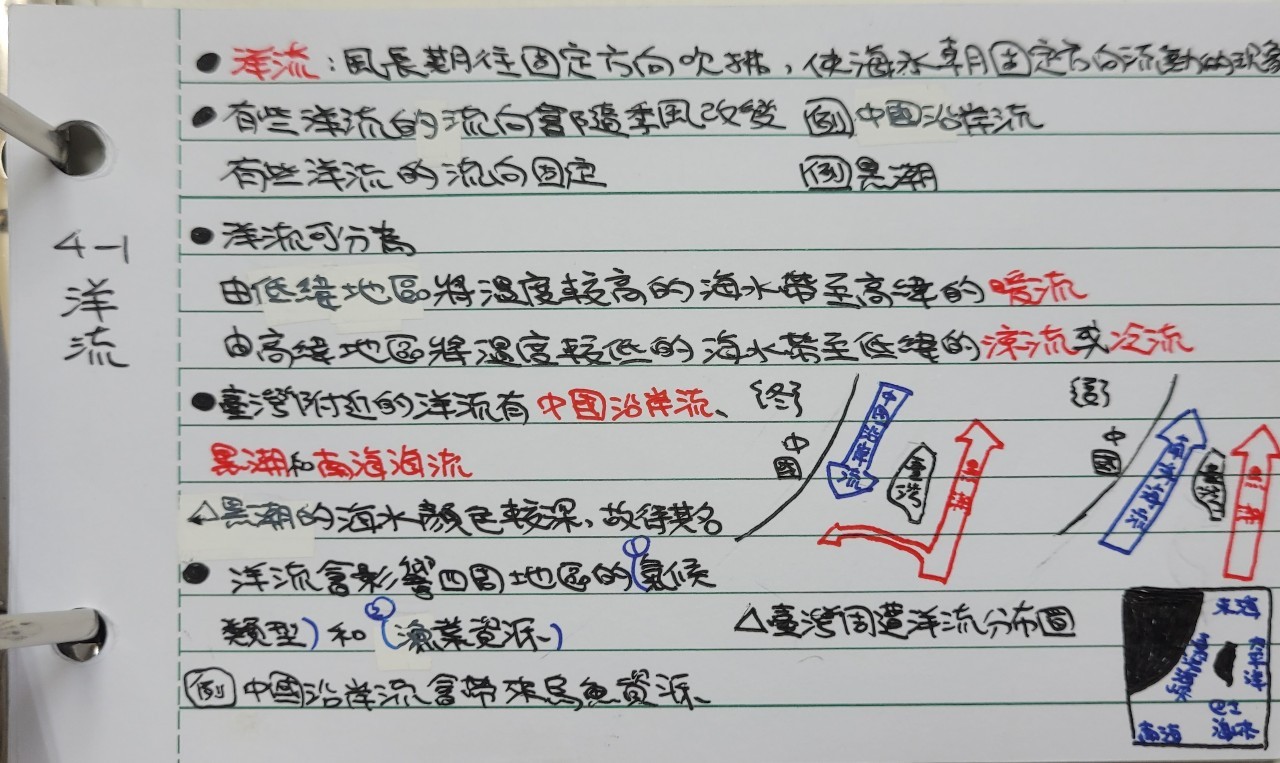 4-1
洋流
●洋流：風長期往固定方向吹拂，使海水朝固定方向流動的現象
●有些洋流的流向會隨季風改變 例 中國沿岸流
有些洋流的流向固定 例 黑潮
●洋流可分為
由低緯地區將溫度較高的海水帶至高緯的暖流
由高緯地區將溫度較低的海水帶至低緯的涼流或冷流
●臺灣附近的洋流有中國沿岸流、
黑潮和南海海流
△黑潮的海水顏色較深，故得其名
●洋流會影響四周地區的①(氣候
類型)和②(漁業資源)
例 中國沿岸流會帶來烏魚資源
{冬}
中國
中國沿岸流
臺灣
黑潮
中國
臺灣
黑潮
△臺灣周遭洋流分布圖
東海
太平洋
巴士海峽
南海